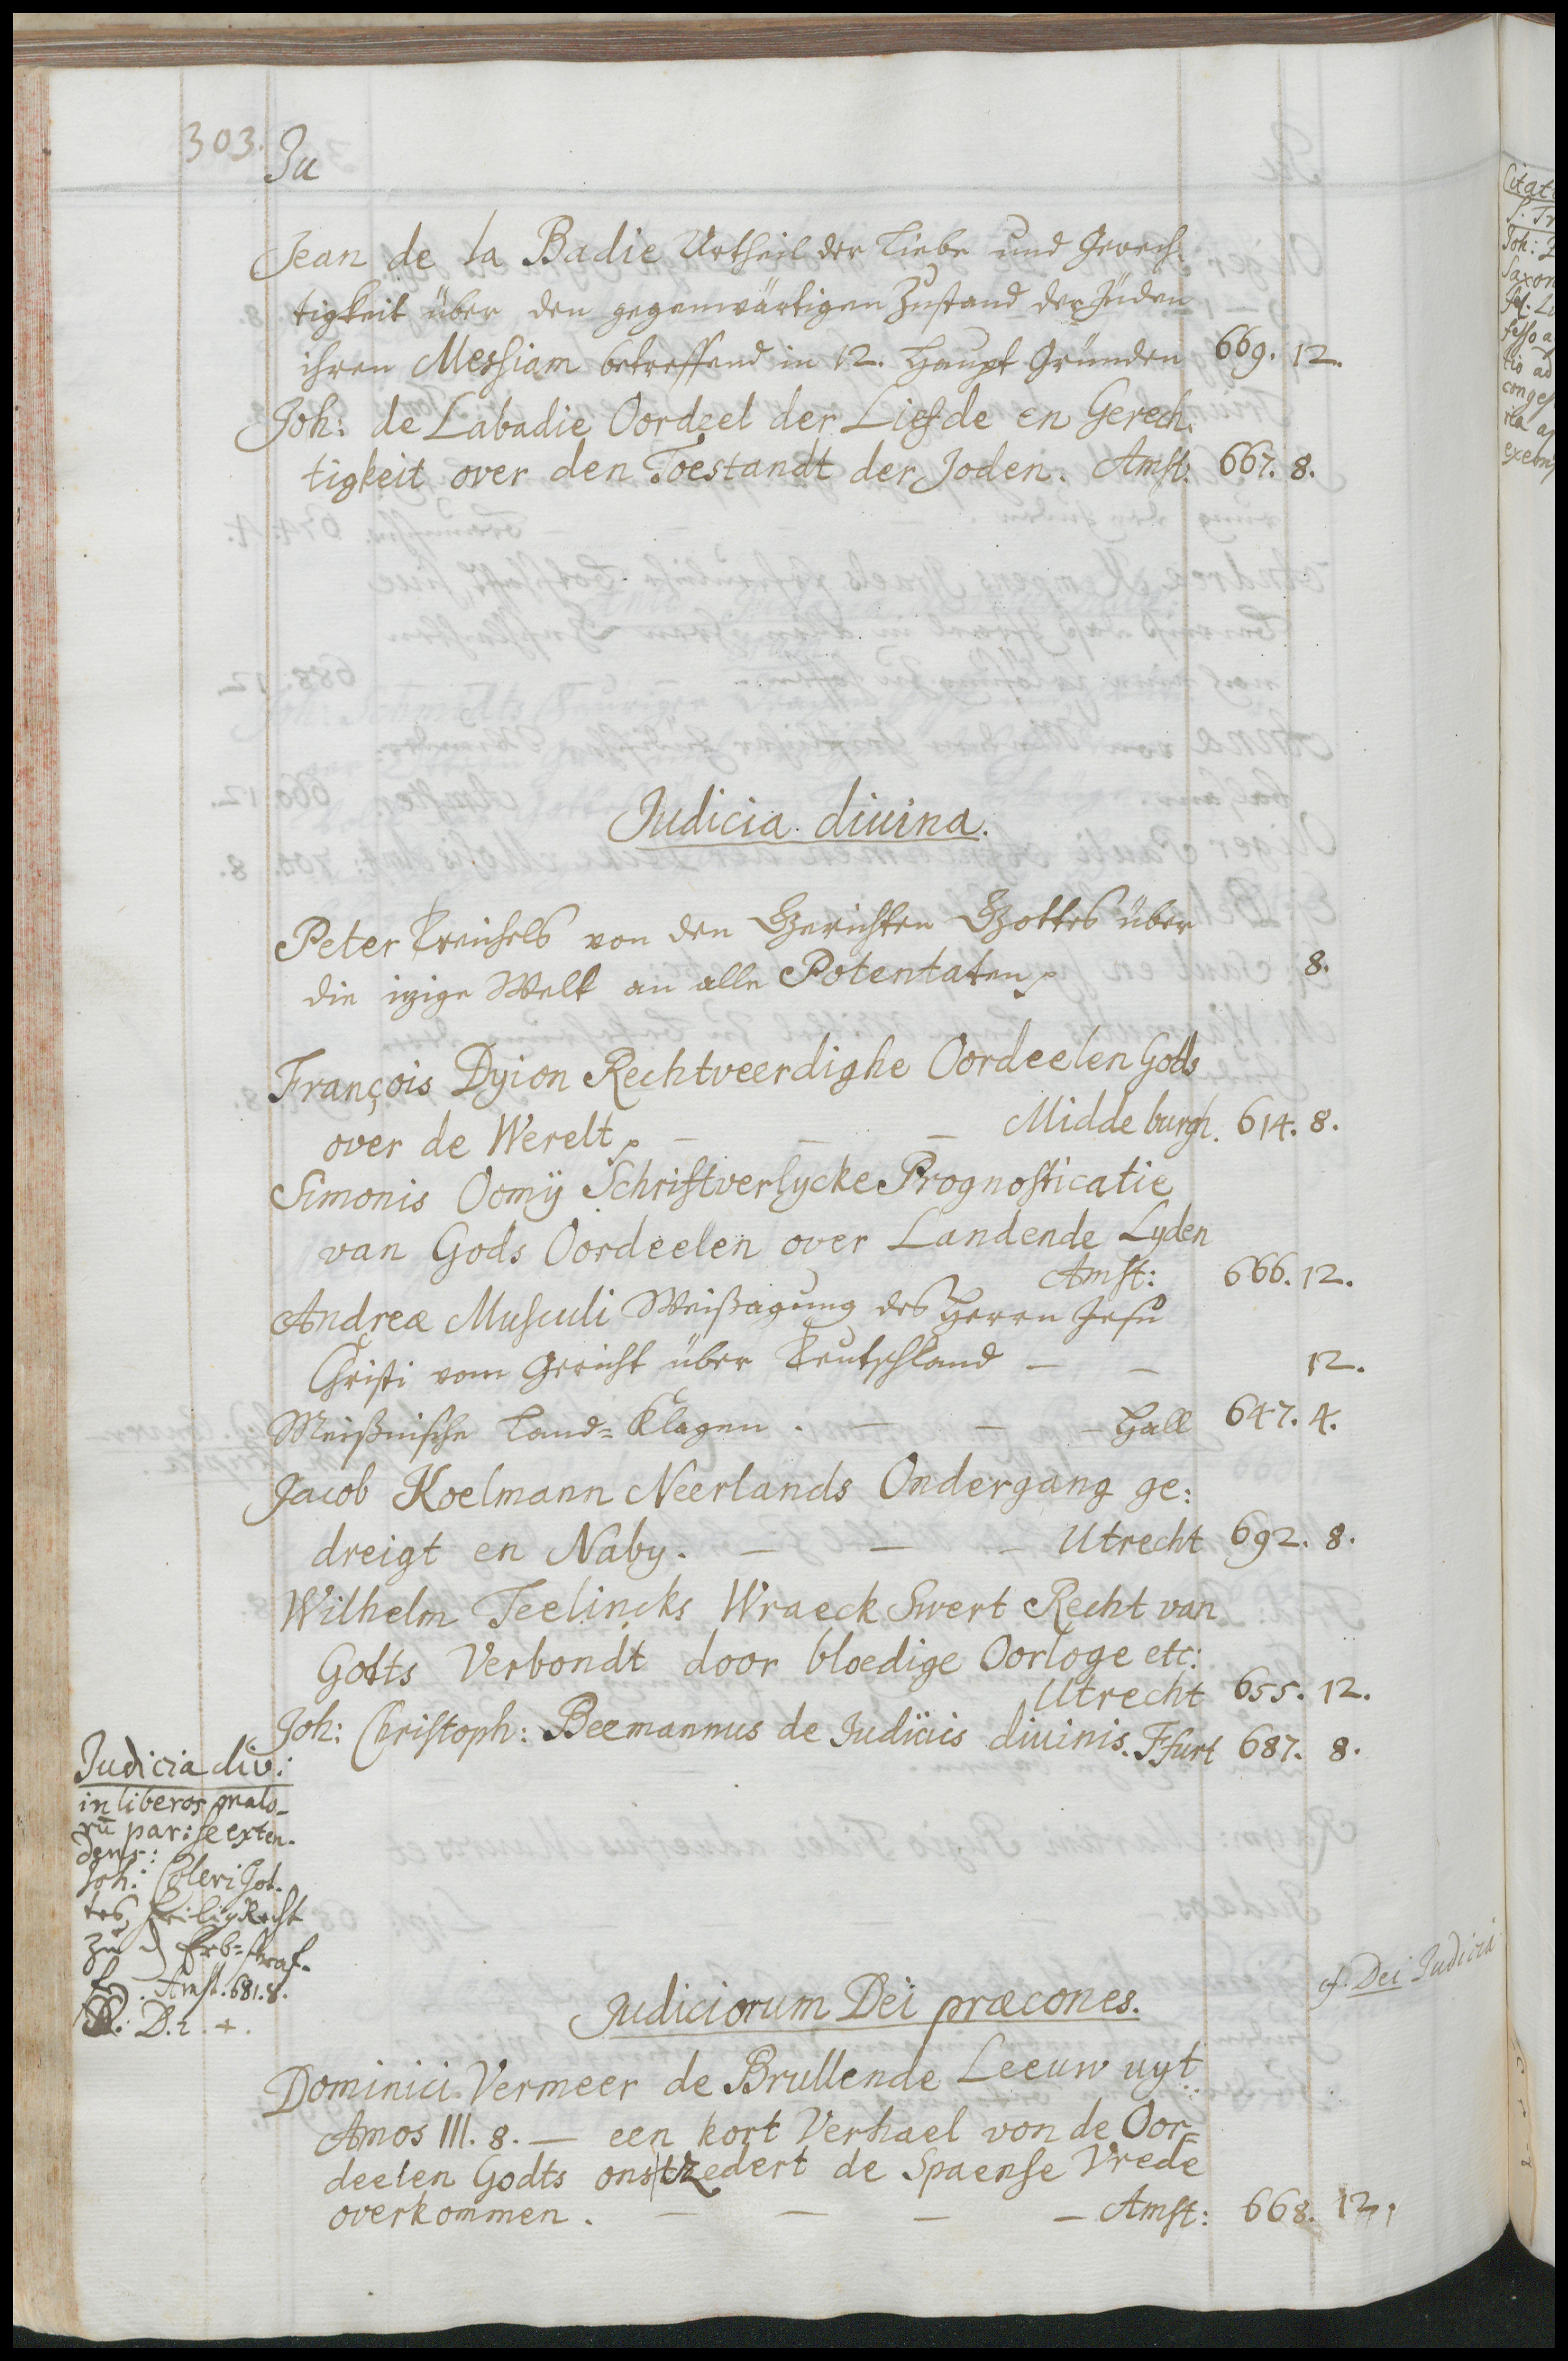 303.
Ju
Jean de la Badie Urtheil der Liebe und Gerech-
tigkeit über den gegenwärtigen Zustand der Jüden
ihren Messiam betreffend in 12. Haupt Gründen 669. 12.
Joh: de Labadie Oordeel der Liefde en Gerech-
tigkeit over den Toestandt der Joden. Amst. 667. 8.
Judicia divina.
Peter von den Gerichten Gottes über
die izige Welt an alle Potentaten 8.
François Dyion Rechtveerdighe Oordeelen Gods
over de Werelt. – – – Middeburgh. 614. 8.
Simonis Oomÿ Schriftverlycke Prognosticatie
van Gods Oordeelen over Landende Lyden
Amst: 666. 12.
Andreæ Musculi Weißagung des Herrn Jesu
Christi vom Gericht über Teutschland – – 12.
Meißnische Land-Klagen. – – – Hall 647. 4.
Jacob Koelmann Neerlands Ondergang ge:
dreigt en Naby. – – – Utrecht 692. 8.
Wilhelm Teelincks Wraeck Swert Recht van
Gotts Verbondt door bloedige Oorloge etc:
Utrecht 655. 12.
Joh: Christoph: Beemannus de Judiciis divinis. Ffurt 687. 8.
Judicia div:
in liberos malo-
rū par: se exten-
dens:
Joh: Coleri Got-
tes heilig Recht
zu d Erb-straf-
f. Amst. 681. 8.
B. 2. +.
cf. Dei Judicia
Judiciorum Dei præcones.
Dominici Vermeer de Brullende Leeuw uyt
Amos III. 8. – een kort Verhael von de Oor=
deelen Godts ons tzedert de Spaense Vrede
overkommen. – – – – Amst: 668. 12.